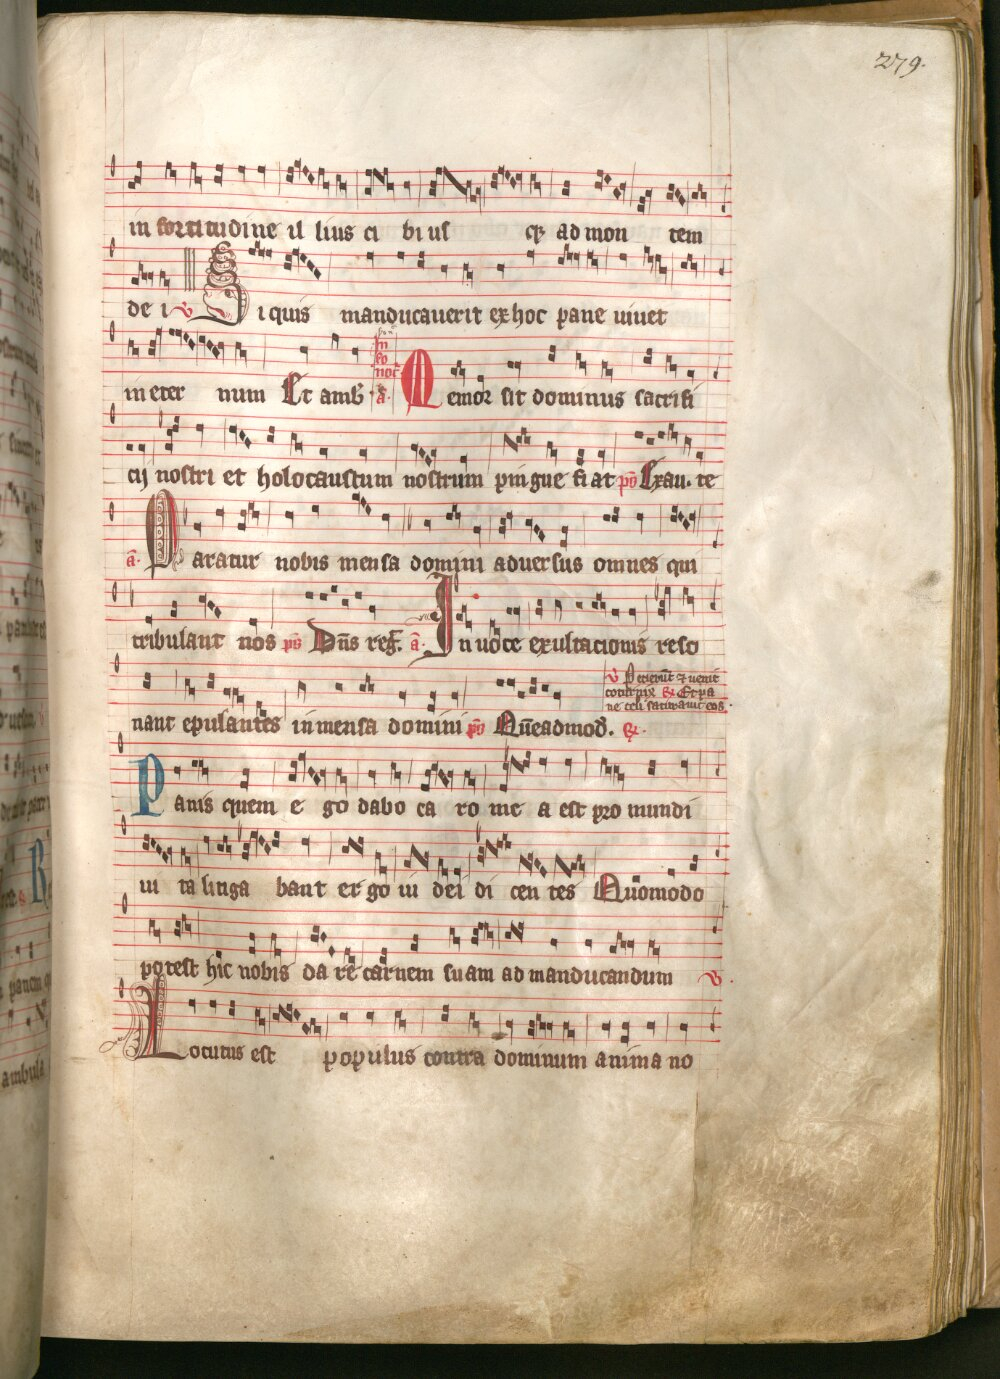 279.
in fortitudine il lius ci bi us qȝ ad mon tem
de i ℣ Siquis manducaverit ex hoc pane vivet
in eter num Et amb̄ In ev̄ noc̄ a͞. Memor sit dominus sacrifi
cij nostri et holocaustum nostrum pingue fi at p̄s Exau. te
a͞. Paratur nobis mensa domini adversus omnes qui
tribulant nos p̄s Dn̄s reḡ. a͞. In voce exultacionis reso
℣ Petierūt ⁊ venit
coturnix ℟ Et pa
ne celi saturavit eos.
nant epulantes in mensa domini p̄s Quēadmod̄. ℟.
Panis quem e go dabo ca ro me a est pro mundi
vi ta litiga bant ergo iu dei di cen tes Quomodo
potest hic nobis da re carnem suam ad manducandum ℣.
Locutus est populus contra dominum anima no